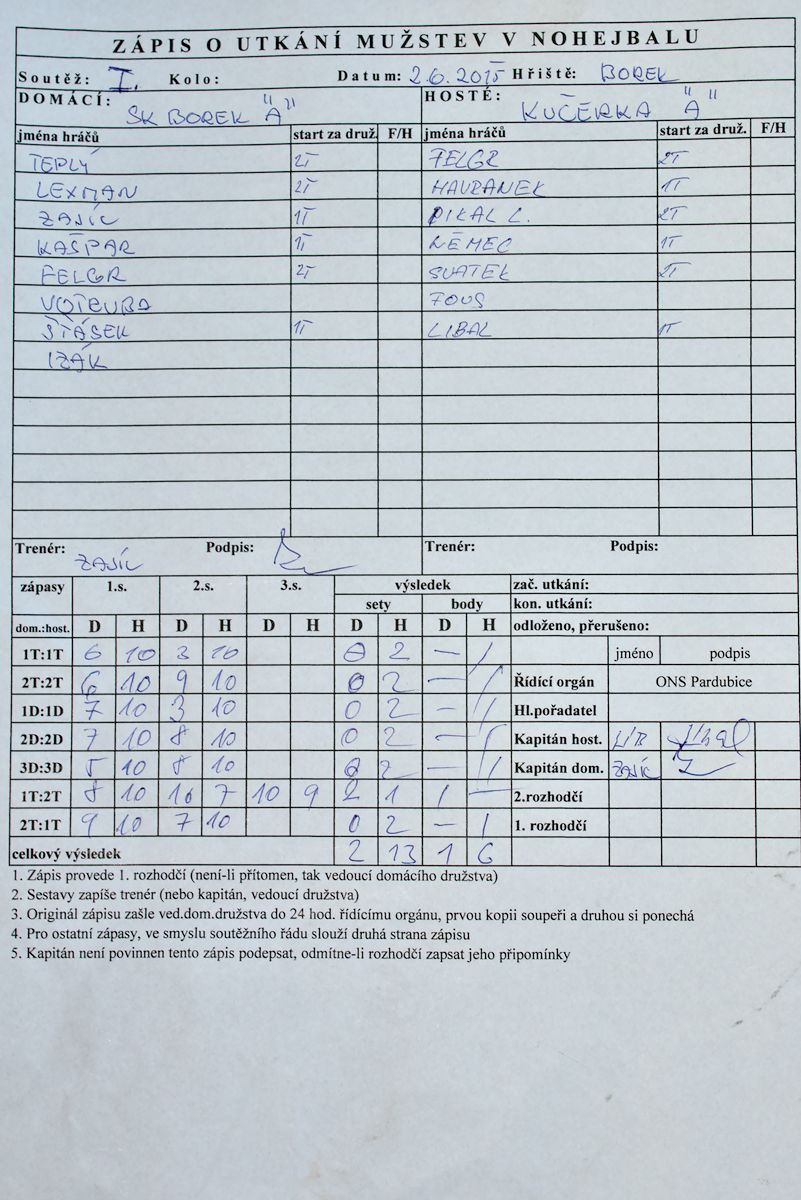 ZÁPIS O UTKÁNÍ MUŽSTEV V NOHEJBALU
Soutěž: I. Kolo: Datum: 2.6.2015 Hřiště: BOREK
DOMÁCÍ: SK BOREK "A" HOSTÉ: KUČERKA "A"
jména hráčů start za druž. F/H jména hráčů start za druž. F/H
TEPLÝ 2T FELGR 2T
LEXMAN 2T HAVRANEK 1T
ZAJÍC 1T PIKAL L. 2T
KAŠPAR 1T NĚMEC 1T
FELGR 2T SVATEK 2T
VOTRUBA FOUS
ŠŤÁSEK 1T LIBAL 1T
IZÁK
Trenér: ZAJÍC Podpis: Trenér: Podpis:
zápasy 1.s. 2.s. 3.s. výsledek zač. utkání:
sety body kon. utkání:
dom.:host. D H D H D H D H D H odloženo, přerušeno:
1T:1T 6 10 3 10 0 2 — 1 jméno podpis
2T:2T 6 10 9 10 0 2 — 1 Řídící orgán ONS Pardubice
1D:1D 7 10 3 10 0 2 — 1 Hl.pořadatel
2D:2D 7 10 8 10 0 2 — 1 Kapitán host. LIB
3D:3D 5 10 8 10 0 2 — 1 Kapitán dom. ZAJÍC
1T:2T 8 10 10 7 10 9 2 1 1 — 2.rozhodčí
2T:1T 9 10 7 10 0 2 — 1 1. rozhodčí
celkový výsledek 2 13 1 6
1. Zápis provede 1. rozhodčí (není-li přítomen, tak vedoucí domácího družstva)
2. Sestavy zapíše trenér (nebo kapitán, vedoucí družstva)
3. Originál zápisu zašle ved.dom.družstva do 24 hod. řídícímu orgánu, prvou kopii soupeři a druhou si ponechá
4. Pro ostatní zápasy, ve smyslu soutěžního řádu slouží druhá strana zápisu
5. Kapitán není povinnen tento zápis podepsat, odmítne-li rozhodčí zapsat jeho připomínky